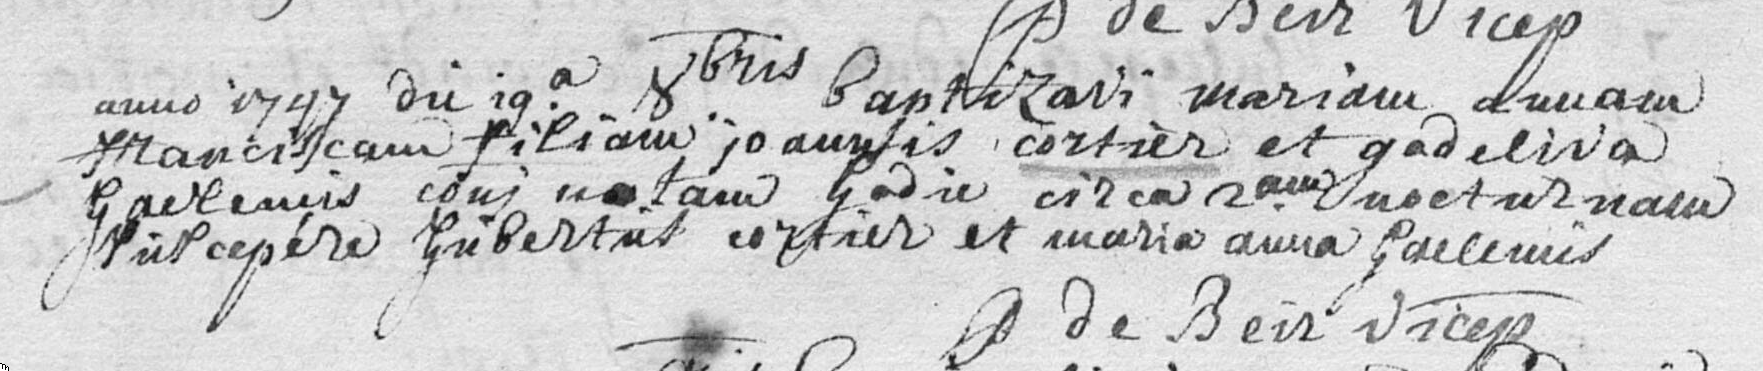 P de Beir Vicep
anno 1797 die 19.a 8bris baptizavi mariam annam
franciscam filiam joannis cortier et godeliva
Haelemeis conj natam hodie circa 2am nocturnam
suscepere Hubertus cortier et maria anna Haelemeis
P de Beir Vicep